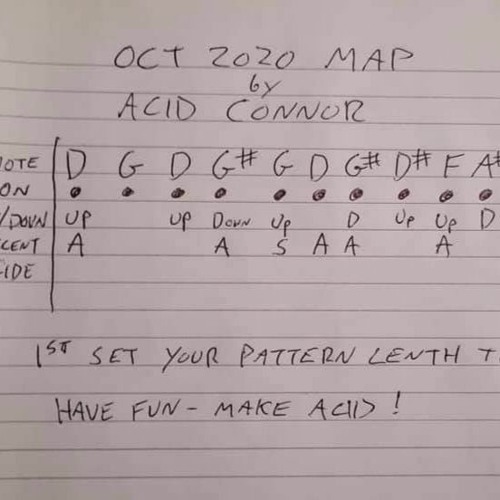 OCT 2020 MAP
by
ACID CONNOR
NOTE D G D G# G D G# D# F A#
ON ● ● ● ● ● ● ● ● ● ●
/DOWN UP UP DOWN UP D UP UP D
CENT A A S A A A
IDE
1ST SET YOUR PATTERN LENTH T
HAVE FUN - MAKE ACID!